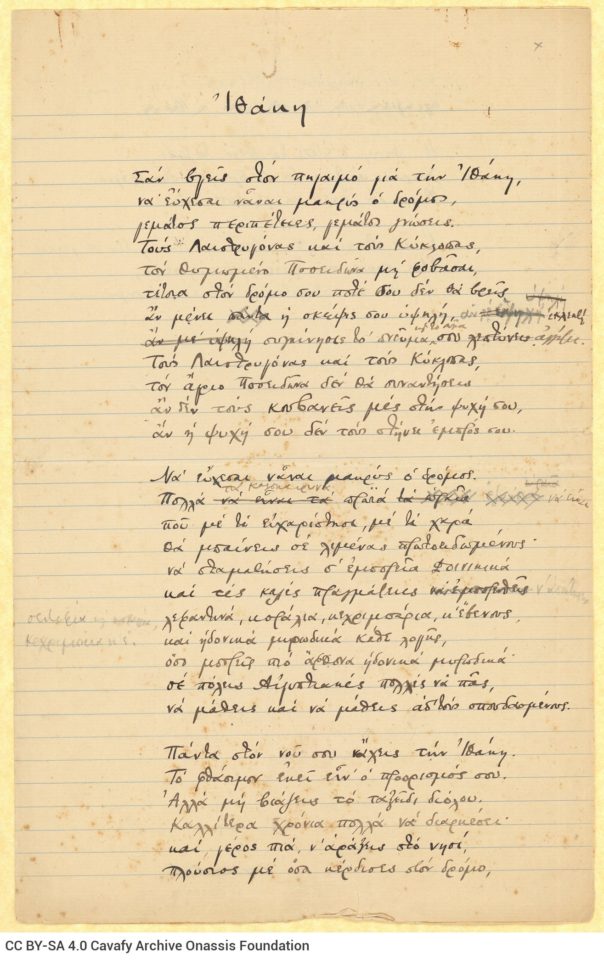 Ἰθάκη
Σὰν βγεῖς στὸν πηγαιμὸ γιὰ τὴν Ἰθάκη,
νὰ εὔχεσαι νἆναι μακρὺς ὁ δρόμος,
γεμάτος περιπέτειες, γεμάτος γνώσεις.
Τοὺς Λαιστρυγόνας καὶ τοὺς Κύκλωπας,
τὸν θυμωμένο Ποσειδῶνα μὴ φοβᾶσαι,
τέτοια στὸν δρόμο σου ποτέ σου δὲν θὰ βρεῖς
ἂν μένει πάντα ἡ σκέψις σου ὑψηλή, ἂν ἐκλεκτὴ
συγκίνησις τὸ πνεῦμα σου ἀγγίζει.
Τοὺς Λαιστρυγόνας καὶ τοὺς Κύκλωπας,
τὸν ἄγριο Ποσειδῶνα δὲν θὰ συναντήσεις
ἂν δὲν τοὺς κουβανεῖς μὲς στὴν ψυχή σου,
ἂν ἡ ψυχή σου δὲν τοὺς στήνει ἐμπρός σου.
Νὰ εὔχεσαι νἆναι μακρὺς ὁ δρόμος.
Πολλὰ τὰ καλοκαιρινὰ πρωϊὰ νὰ εἶναι
ποῦ μὲ τί εὐχαρίστησι, μὲ τί χαρὰ
θὰ μπαίνεις σὲ λιμένας πρωτοειδωμένους·
νὰ σταματήσεις σ' ἐμπορεῖα Φοινικικὰ
καὶ τὲς καλὲς πραγμάτειες
σεντέφια καὶ κοράλλια, κεχριμπάρια, κ' ἔβενους,
καὶ ἡδονικὰ μυρωδικὰ κάθε λογῆς,
ὅσο μπορεῖς πιὸ ἄφθονα ἡδονικὰ μυρωδικά·
σὲ πόλεις Αἰγυπτιακὲς πολλὲς νὰ πᾶς,
νὰ μάθεις καὶ νὰ μάθεις ἀπ' τοὺς σπουδασμένους.
Πάντα στὸν νοῦ σου νἄχεις τὴν Ἰθάκη.
Τὸ φθάσιμον ἐκεῖ εἶν' ὁ προορισμός σου.
Ἀλλὰ μὴ βιάζεις τὸ ταξεῖδι διόλου.
Καλλίτερα χρόνια πολλὰ νὰ διαρκέσει·
καὶ γέρος πιά, ν' ἀράξεις στὸ νησί,
πλούσιος μὲ ὅσα κέρδισες στὸν δρόμο,
CC BY-SA 4.0 Cavafy Archive Onassis Foundation